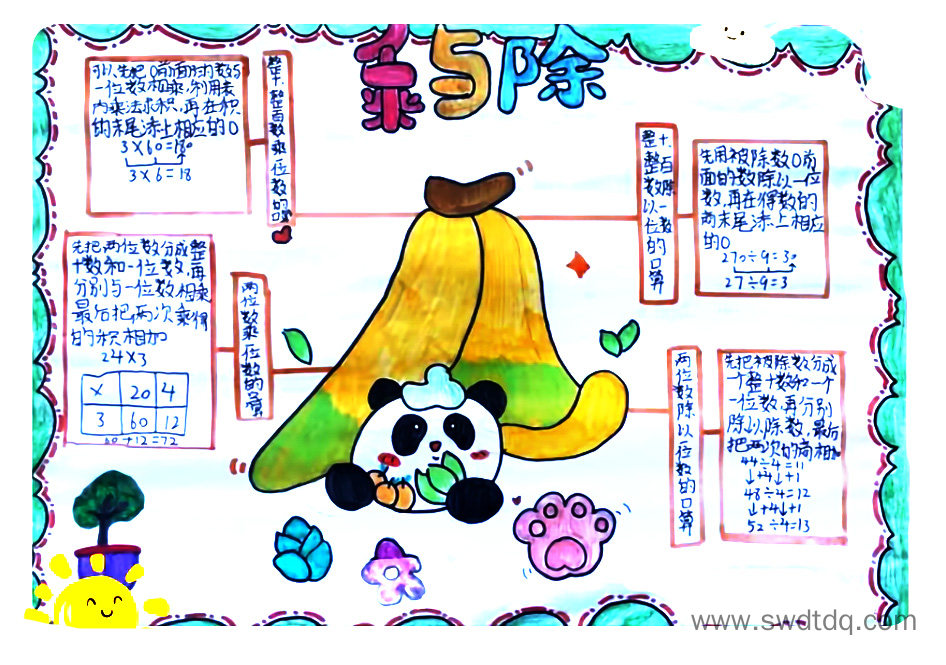 乘与除
可以先把0前面的数与
一位数相乘,利用表
内乘法求积,再在积
的末尾添上相应的0
3×60=180
3×6=18
整十、整百数乘一位数的口算
先把两位数分成整
十数和一位数,再
分别与一位数相乘
最后把两次乘得
的积相加
24×3
× 20 4
3 60 12
60+12=72
两位数乘一位数的口算
整十、整百数除以一位数的口算
先用被除数0前
面的数除以一位
数,再在得数的
末尾添上相应
的0
270÷9=30
27÷9=3
两位数除以一位数的口算
先把被除数分成
一个整十数和一个
一位数,再分别
除以除数,最后
把两次的商相加
44÷4=11
↓+4 ↓+1
48÷4=12
↓+4 ↓+1
52÷4=13
www.swdtdq.com